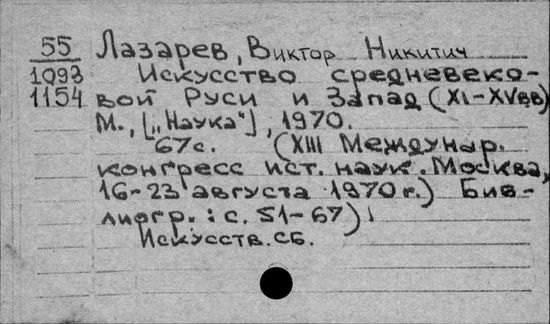 55 Лазарев, Виктор Никитич
1093 Искусство средневеко-
1154 вой Руси и Запад (XI-XVвв)
М., [„Наука“], 1970.
67с. (XIII Междунар.
конгресс ист. наук. Москва,
16-23 августа 1970 г.) Биб-
лиогр.: с. 51-67)
Искусств. сб.